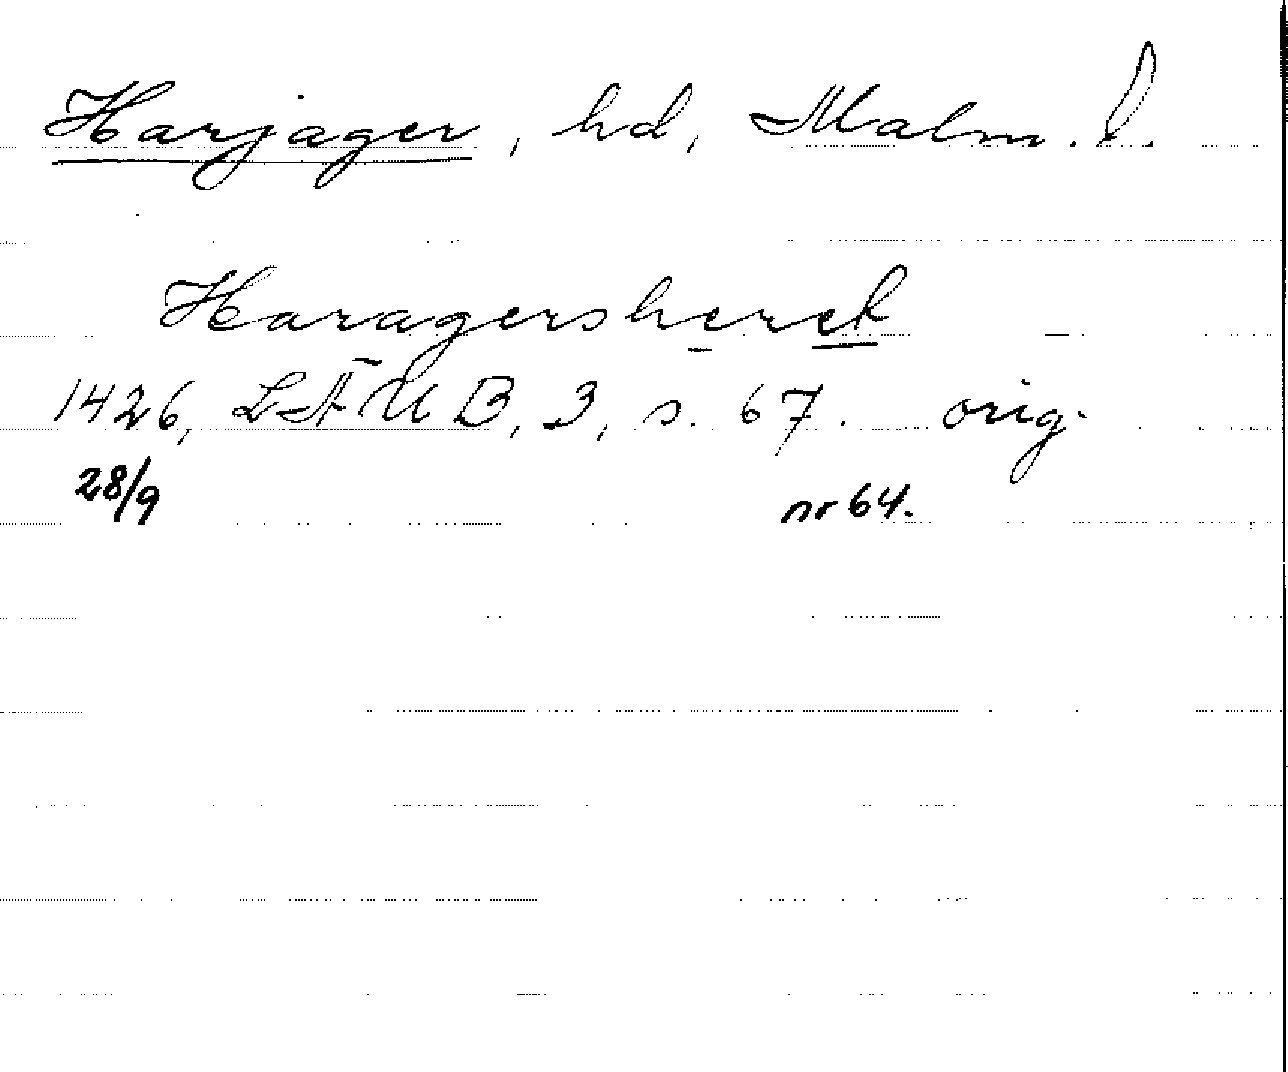 Harjager, hd, Malm. l.
Haragersherek
1426, LÄUB, 3, s. 67. orig.
28/9 nr 64.